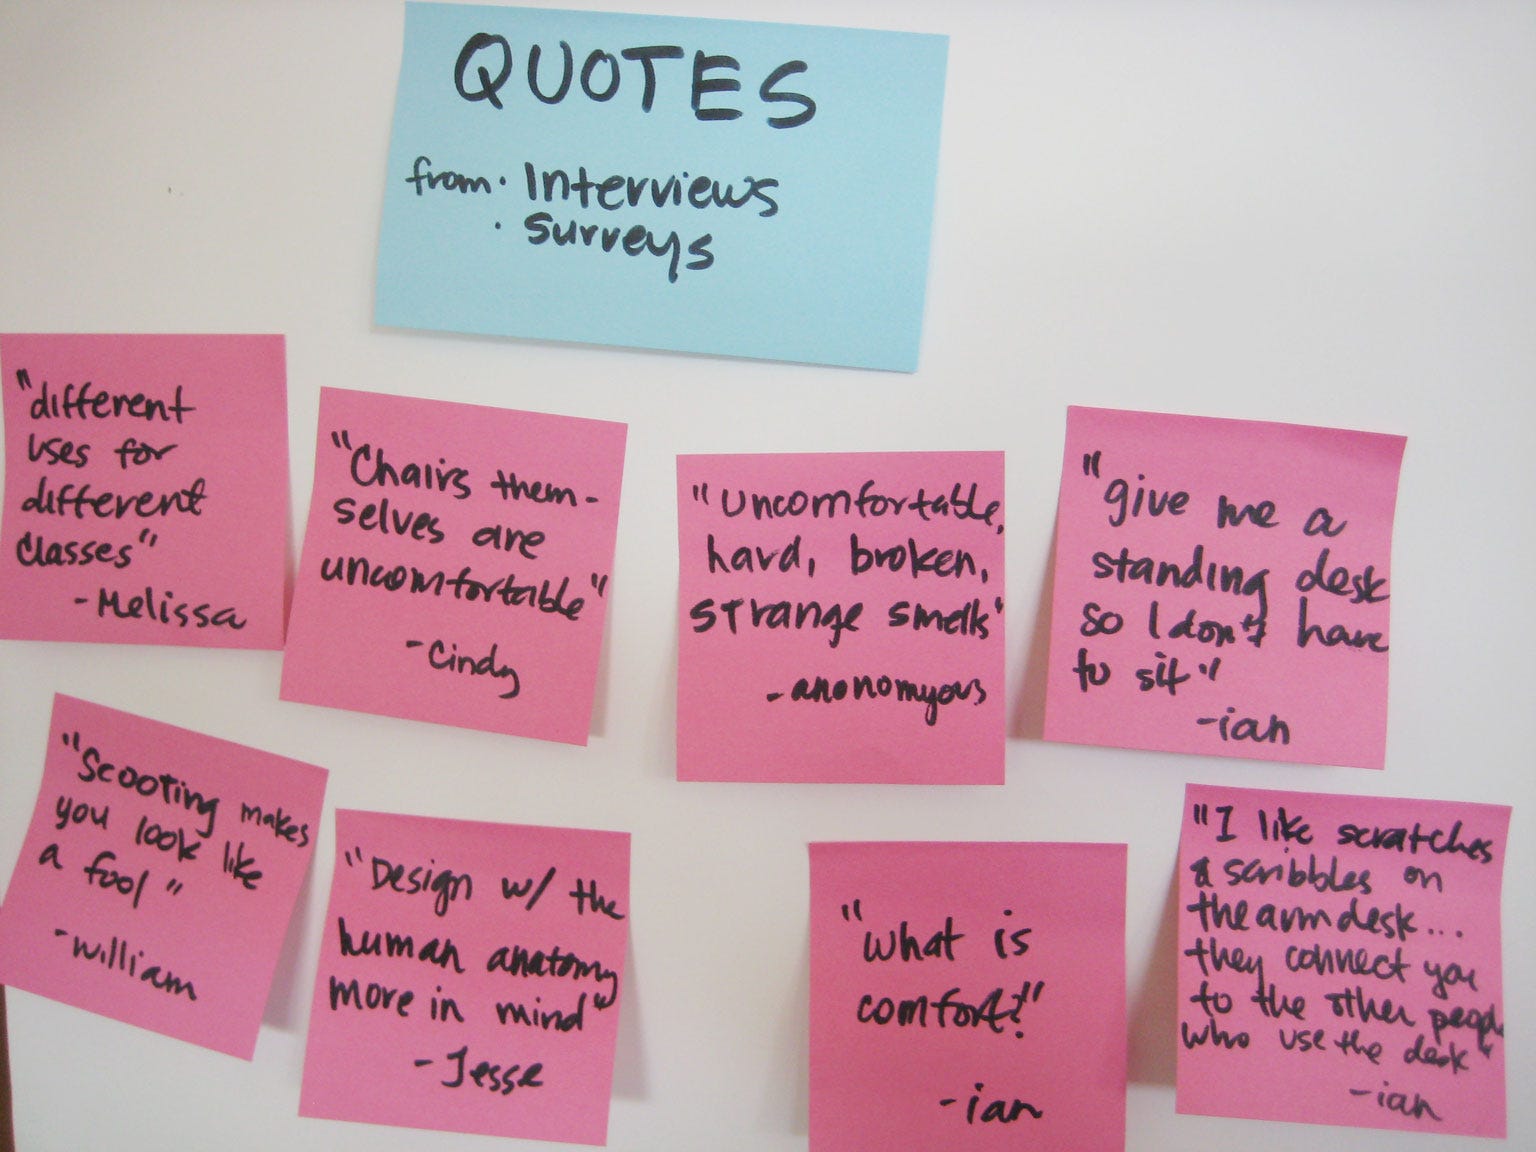 QUOTES
from · Interviews
· surveys
"different
uses for
different
classes"
- Melissa
"Chairs them-
selves are
uncomfortable"
- Cindy
"uncomfortable,
hard, broken,
strange smells"
- anonomyous
"give me a
standing desk
so I don't have
to sit"
- ian
"Scooting makes
you look like
a fool"
- william
"Design w/ the
human anatomy
more in mind"
- Jesse
"what is
comfort?"
- ian
"I like scratches
& scribbles on
the arm desk...
they connect you
to the other people
who use the desk"
- ian